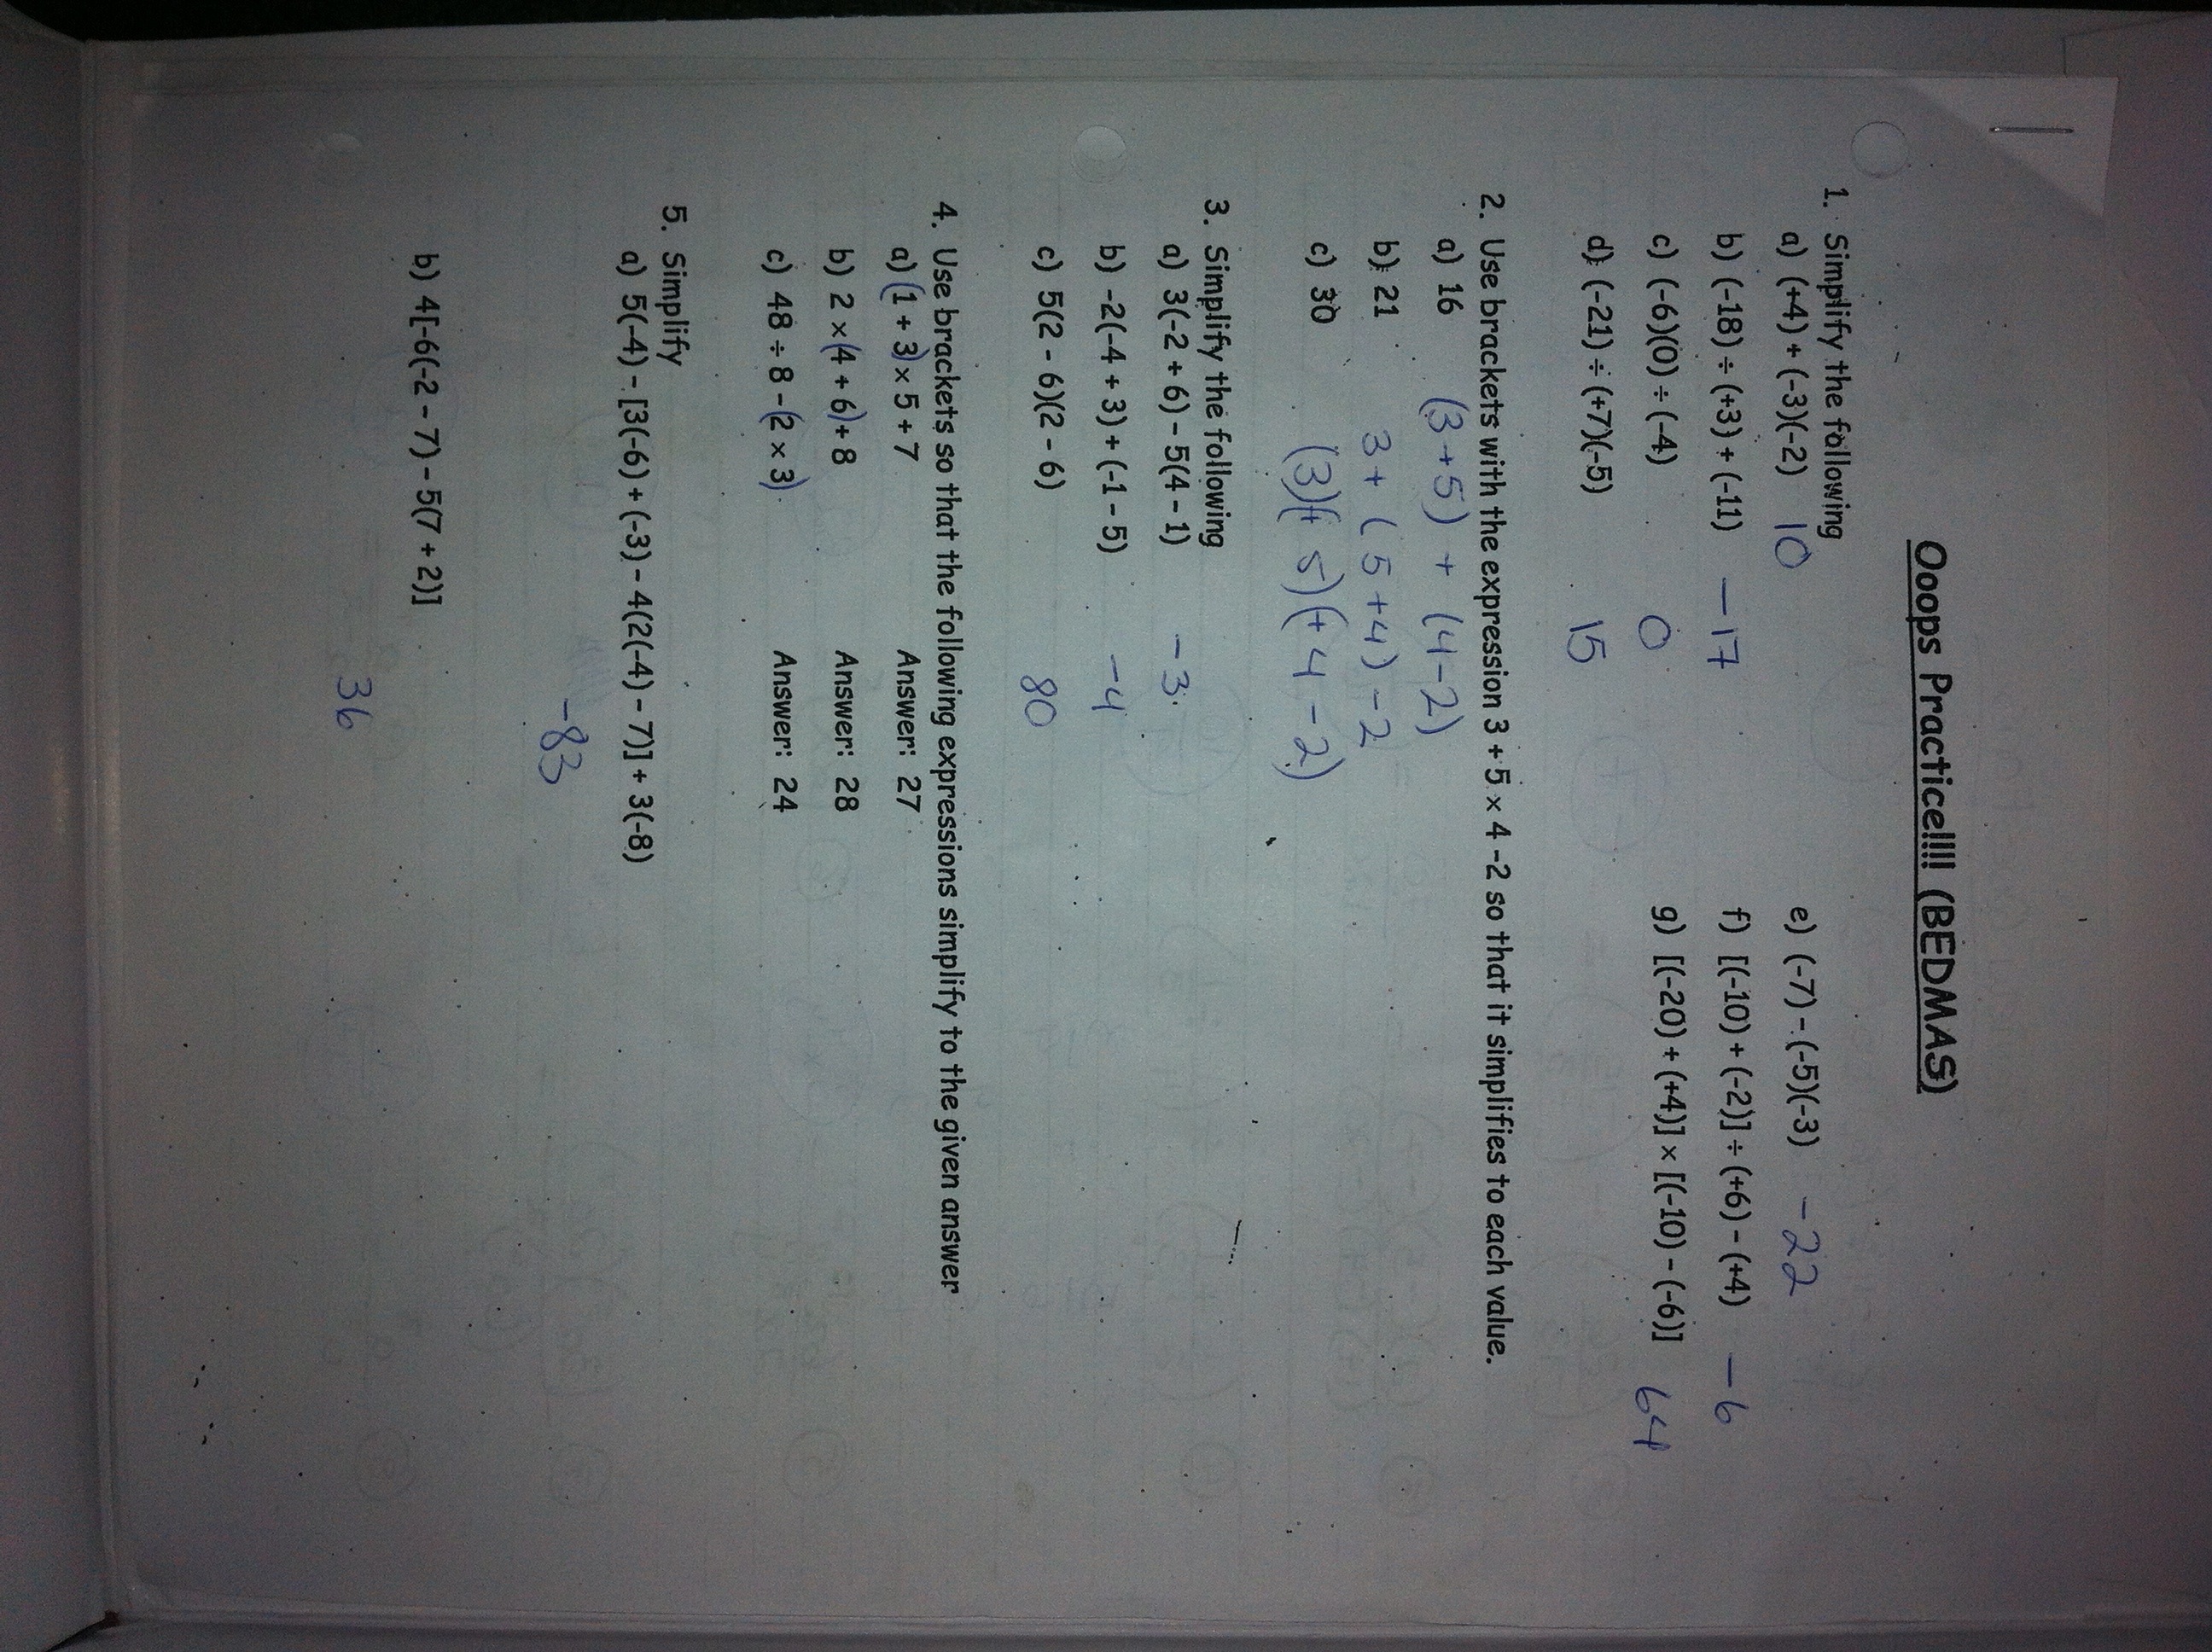 Ooops Practice!!!! (BEDMAS)
1. Simplify the following
a) (+4) + (-3)(-2) 10
b) (-18) ÷ (+3) + (-11) -17
c) (-6)(0) ÷ (-4) 0
d) (-21) ÷ (+7)(-5) 15
e) (-7) - (-5)(-3) -22
f) [(-10) + (-2)] ÷ (+6) - (+4) -6
g) [(-20) + (+4)] × [(-10) - (-6)] 64
2. Use brackets with the expression 3 + 5 × 4 -2 so that it simplifies to each value.
a) 16 (3+5) + (4-2)
b) 21 3+ (5+4) -2
c) 30 (3)(+ 5)(+4-2)
3. Simplify the following
a) 3(-2 + 6) - 5(4 - 1) -3
b) -2(-4 + 3) + (-1 - 5) -4
c) 5(2 - 6)(2 - 6) 80
4. Use brackets so that the following expressions simplify to the given answer
a) (1 + 3) × 5 + 7 Answer: 27
b) 2 × (4 + 6) + 8 Answer: 28
c) 48 ÷ 8 - (2 × 3) Answer: 24
5. Simplify
a) 5(-4) - [3(-6) + (-3) - 4(2(-4) - 7)] + 3(-8)
-83
b) 4[-6(-2 - 7) - 5(7 + 2)]
36